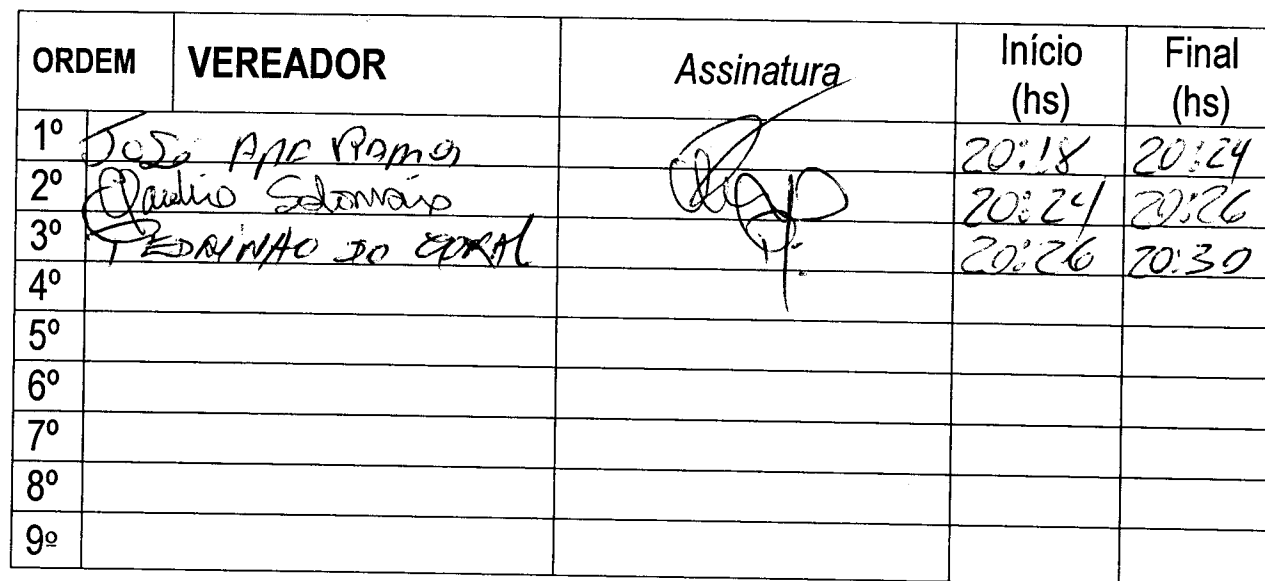 ORDEM VEREADOR Assinatura Início (hs) Final (hs)
1º João Ramos 20:18 20:24
2º Claudio 20:24 20:26
3º PEDRINHO DO 20:26 20:30
4º
5º
6º
7º
8º
9º